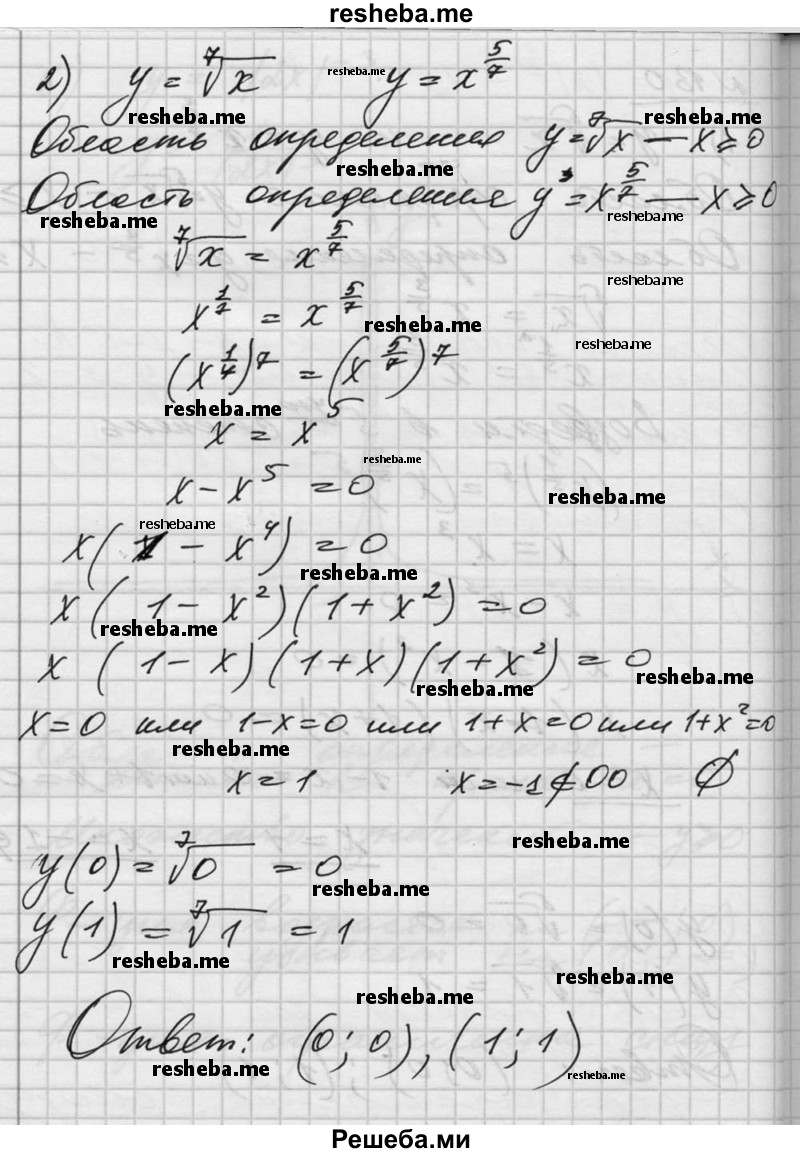 resheba.me
2) y = ⁷√x resheba.me y = x^(5/7)
resheba.me resheba.me
Область определения y = ⁷√x — x ⩾ 0
resheba.me
Область определения y = x^(5/7) — x ⩾ 0
resheba.me resheba.me
⁷√x = x^(5/7)
resheba.me
x^(1/7) = x^(5/7)
resheba.me resheba.me
(x^(1/7))^7 = (x^(5/7))^7
resheba.me
x = x^5
resheba.me
x - x^5 = 0
resheba.me
resheba.me
x(1 - x^4) = 0
resheba.me
x(1 - x^2)(1 + x^2) = 0
resheba.me
x (1 - x)(1 + x)(1 + x^2) = 0
resheba.me resheba.me
x = 0 или 1 - x = 0 или 1 + x = 0 или 1 + x^2 = 0
resheba.me
x = 1 x = -1 ∉ ОО ∅
resheba.me
y(0) = ⁷√0 = 0
resheba.me
y(1) = ⁷√1 = 1
resheba.me resheba.me
resheba.me
Ответ: (0; 0), (1; 1)
resheba.me resheba.me
Решеба.ми